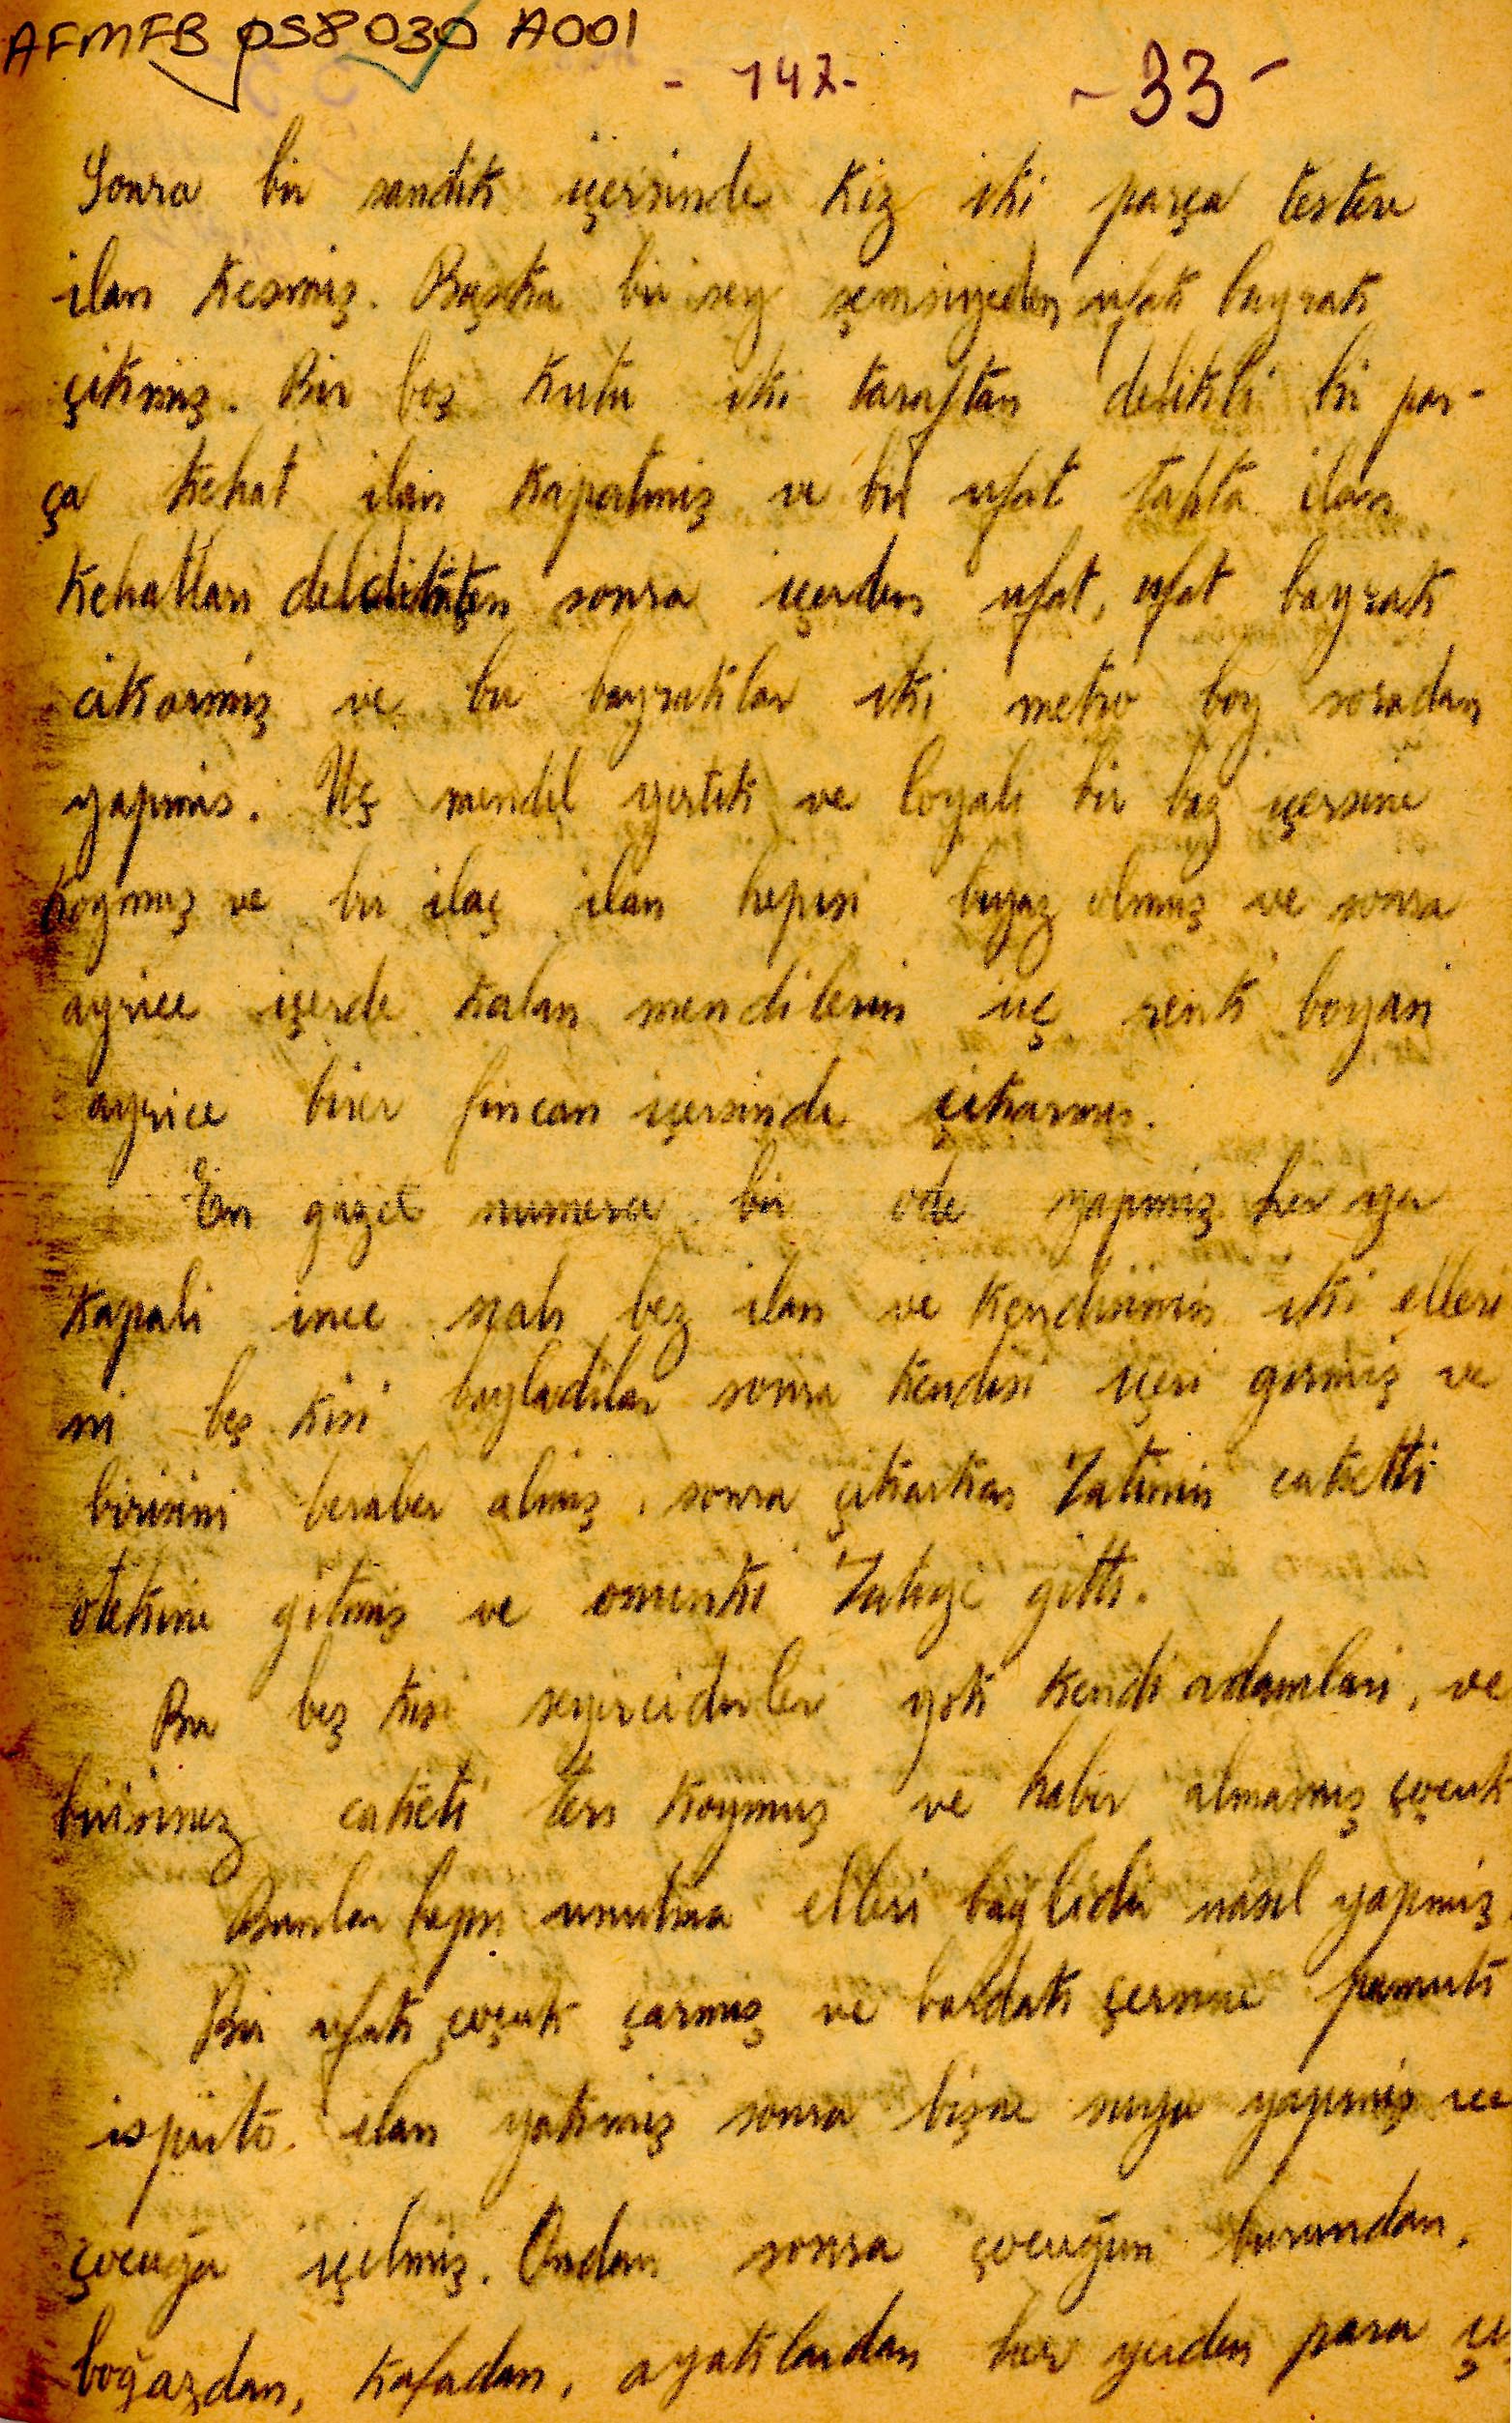 AFMFB DS8030 A001
- 147 -
- 33 -
Sonra bir sandik içersinde kiz iki parça testere
ilan kesmiş. Başka bir şey şemsiyeden ufak bayrak
çikmiş. Bir boş kutu iki taraftan delikli bir par-
ça kehat ilan kapatmiş ve bir ufak tahta ilan
kehatlari sonra içerden ufak, ufak bayrak
cikarmiş ve bu bayraklar iki metro boy soradan
yapmis. Uç mendil yirtik ve boyali bir baz içersine
koymuş ve bir ilaç ilan hepisi biyaz olmuş ve sonra
ayrice içerde kalan mendilerin üç renk boyasi
ayrice birer fincan içersinde çikarmis.
En güzel numera bir ode yapmiş her yer
kapali ince siah bez ilan ve kendisinin iki elleri
ni beş kisi bagladilar sonra kendisi içeri girmiş ve
birisini beraber almiş, sonra çikarkan Zatinin caketti
otekine gitmiş ve onunki gitti.
Bu beş kisi seyircidirler yok kendi adamlari, ve
birisinez caketi ters koymuş ve haber almamiş çocuk
Bunlar hepsi unutma elleri baglidir nasil yapmiş.
Bir ufak çoçuk çarmiş ve bardak çersine pamuk
ispirto ilan yakmiş sonra bişae suyu yapmiş ve
çocuğa içilmiş. Ondan sonra çocuğun burundan,
boğazdan, kafadan, ayaklardan her yerden para çi